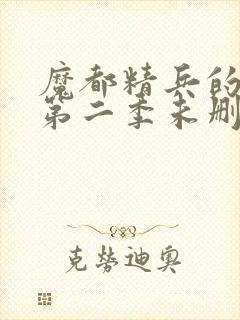 魔都精兵的
第二季未删
克劳迪奥